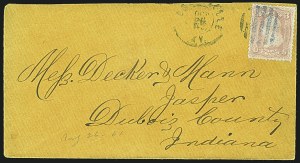 26
KY.
Mess. Decker & Mann
Jasper
Dubois County
Indiana